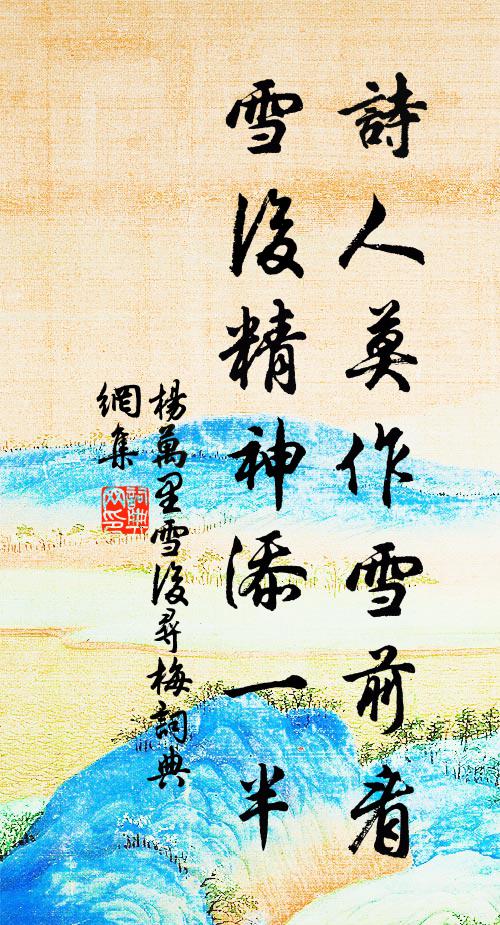 詩人莫作雪前看
雪後精神添一半
楊萬里雪後尋梅詞典
網集
詞典
网印